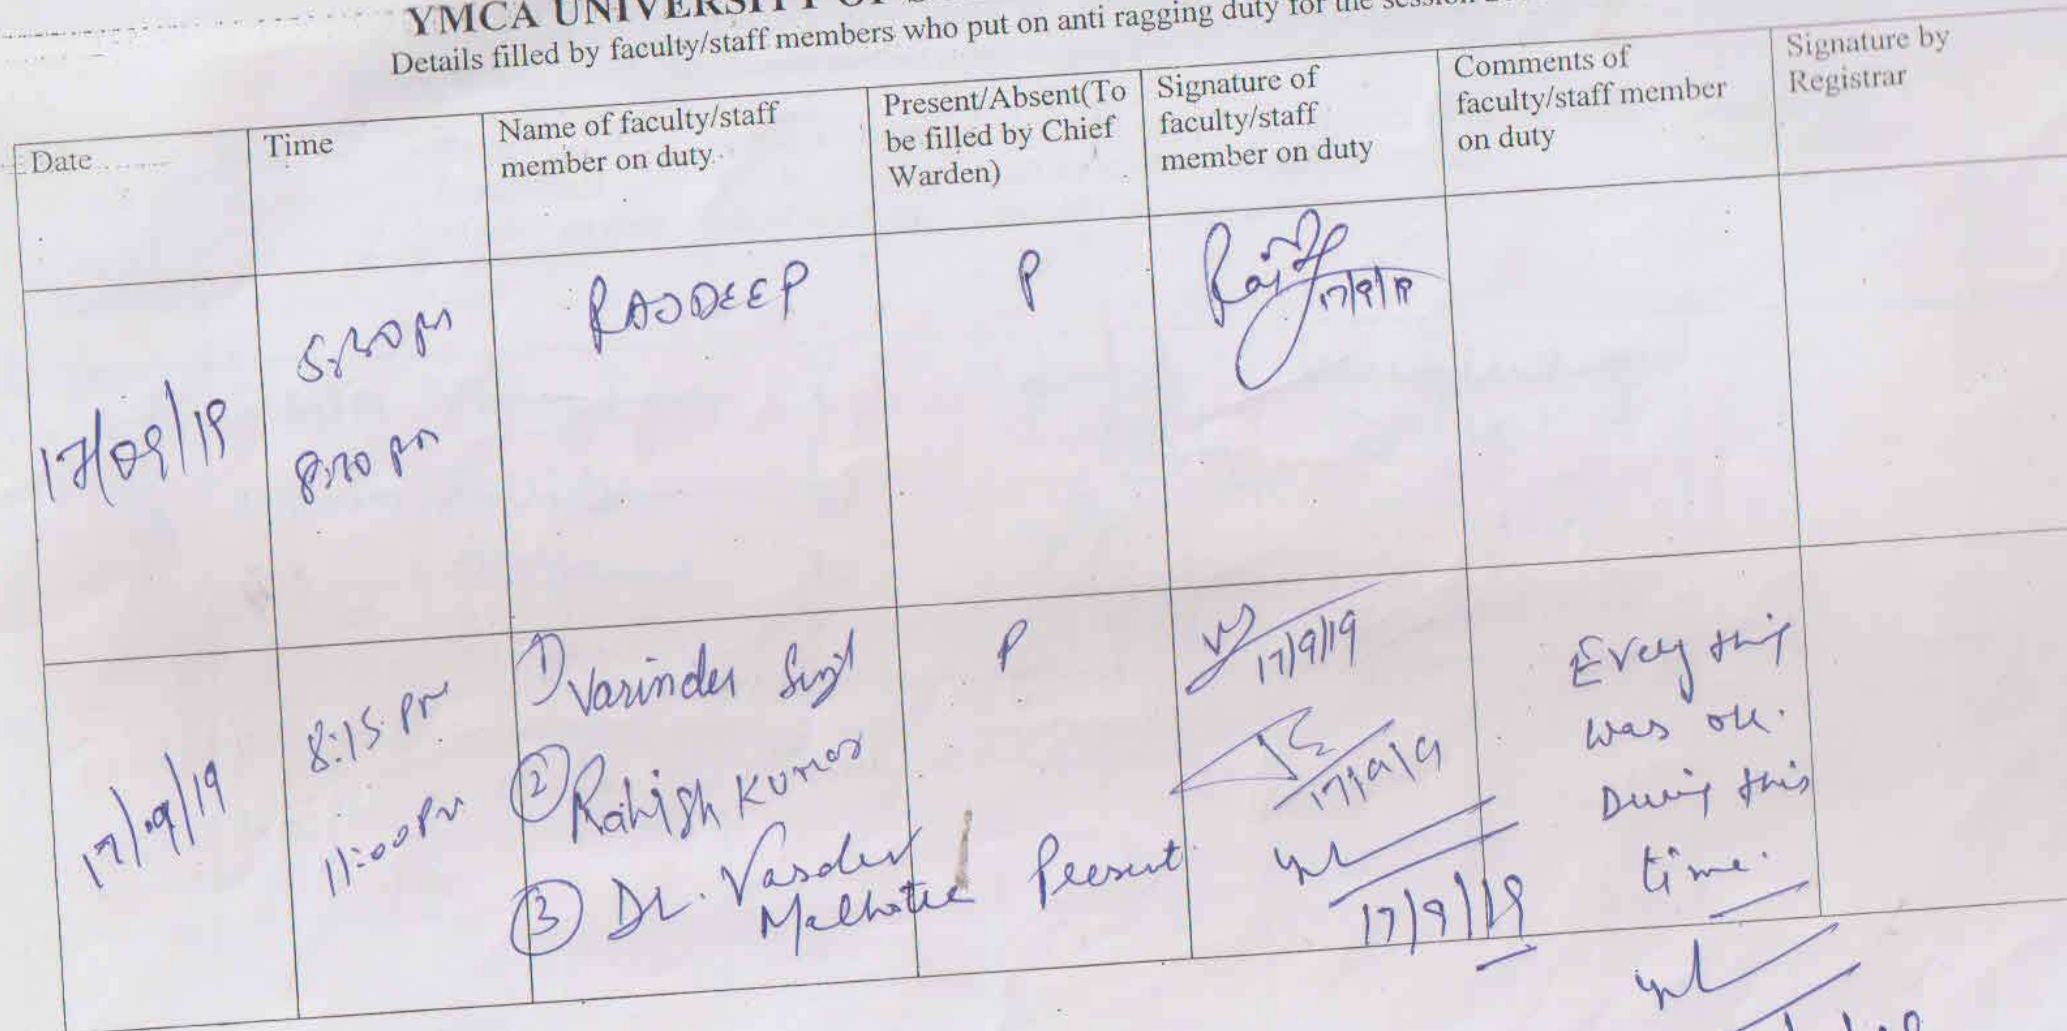 YMCA UNIVERSITY OF
Details filled by faculty/staff members who put on anti ragging duty for the session
Date
Time
Name of faculty/staff
member on duty
Present/Absent(To
be filled by Chief
Warden)
Signature of
faculty/staff
member on duty
Comments of
faculty/staff member
on duty
Signature by
Registrar
17/09/19
5:30 PM
8:30 PM
RAJDEEP
P
17/9/19
17/09/19
8:15 PM
11:00 PM
① Varinder Singh
② Rahish Kumar
③ Dr. Vasdev
Malhotra
P
Present
17/9/19
17/9/19
17/9/19
Every thing
was ok.
During this
time.